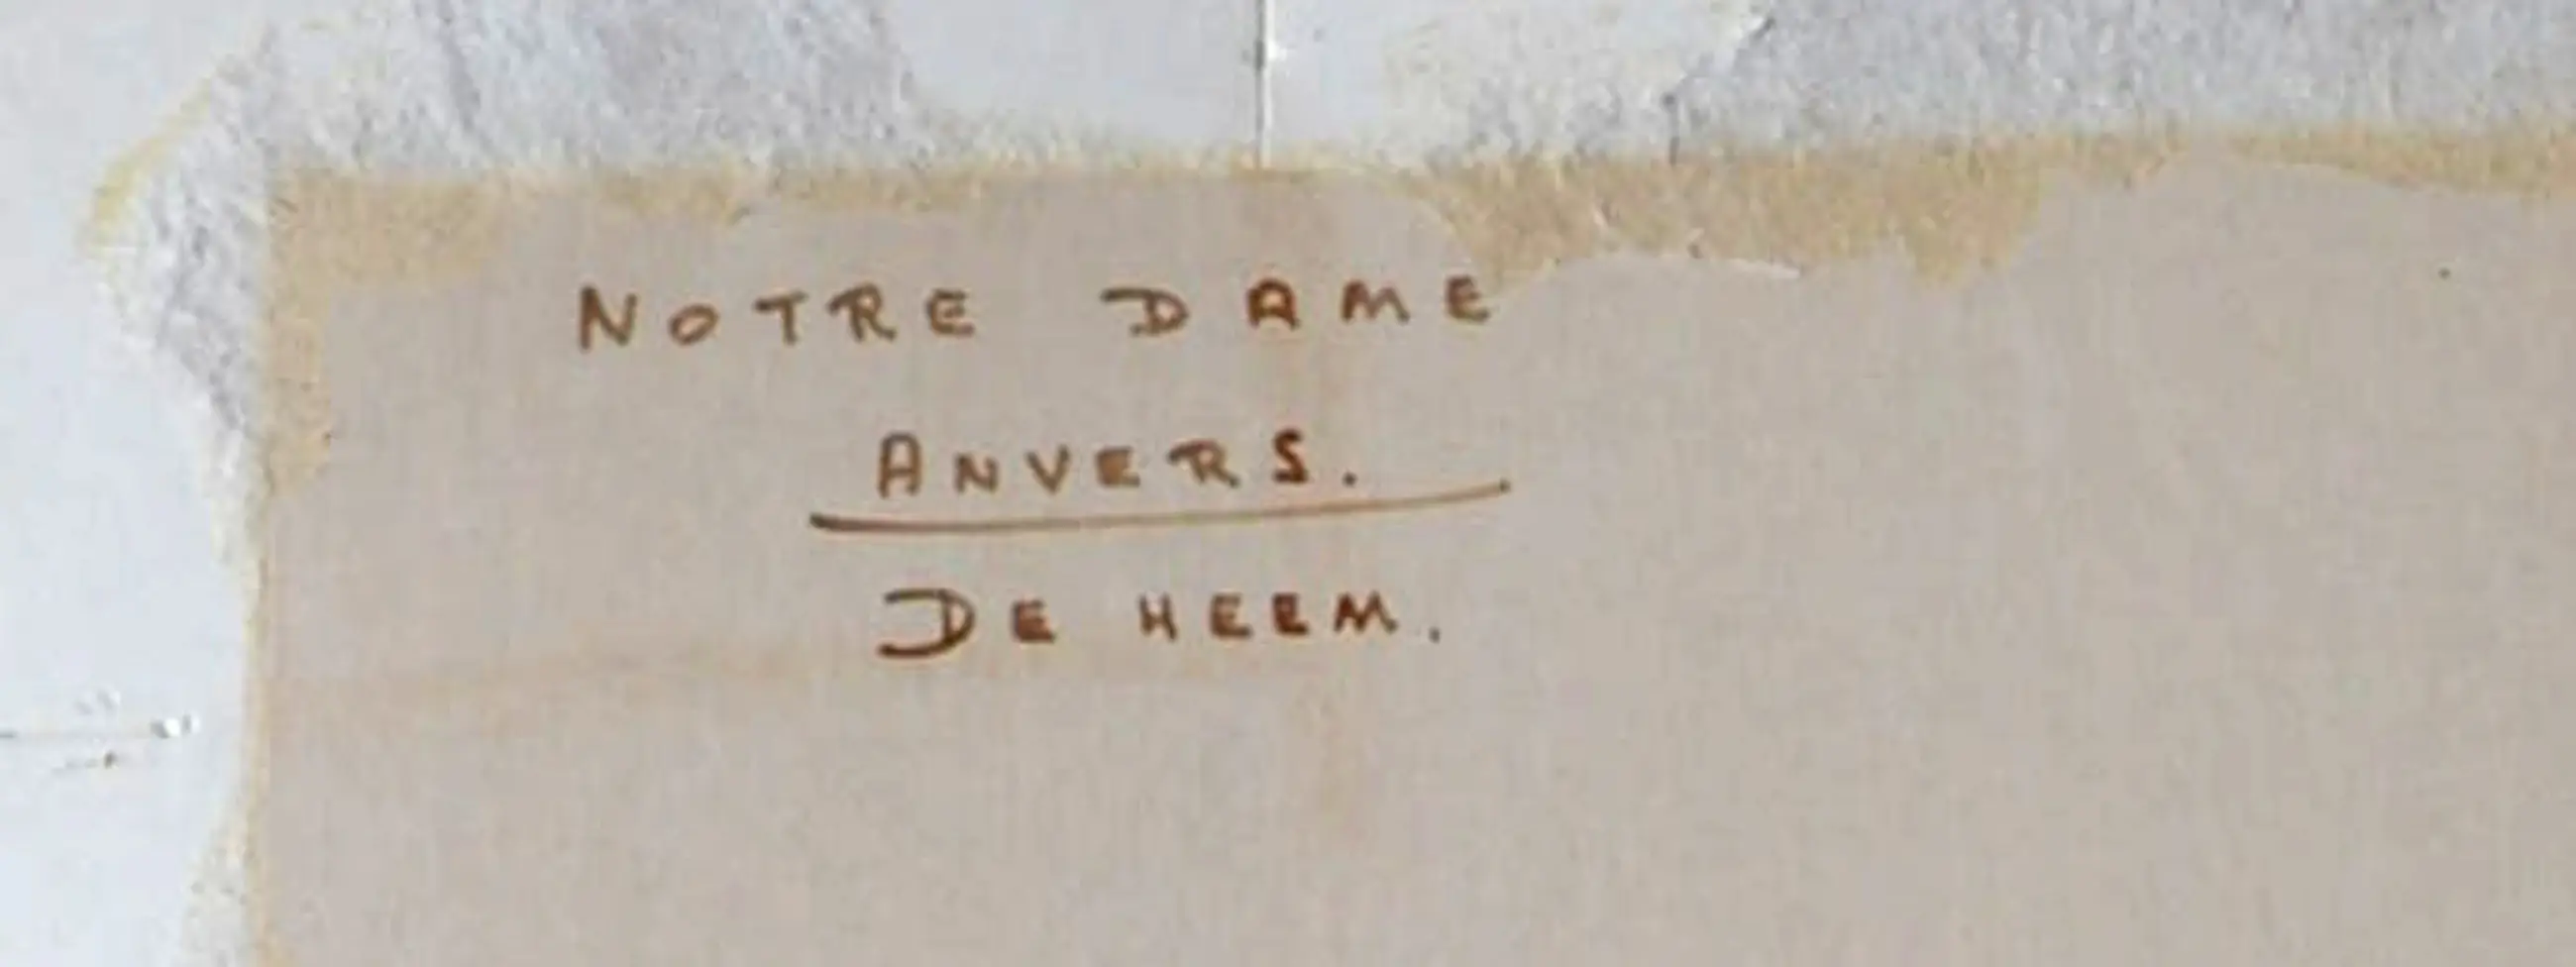 NOTRE DAME
ANVERS.
DE HEEM.